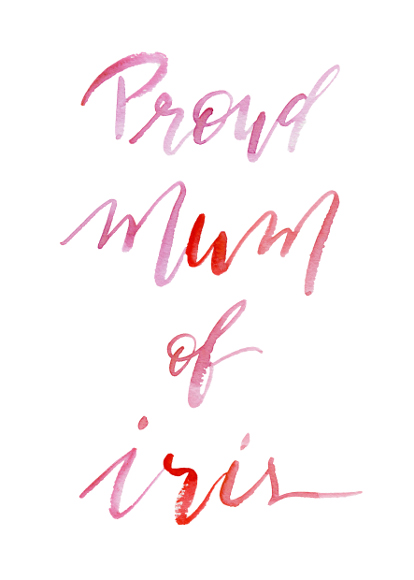 Proud
mum
of
iris